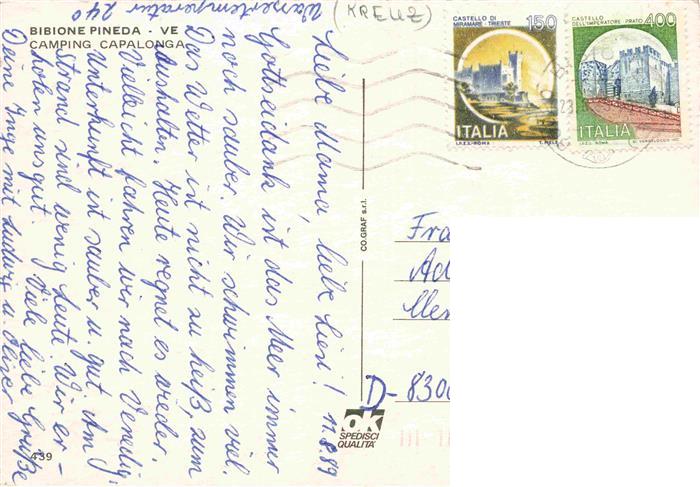 BIBIONE PINEDA - VE
CAMPING CAPALONGA
Wassertemperatur 24°
(KREUZ)
Liebe Mama, liebe Liesl! 11.8.89
Gottseidank ist das Meer immer
noch sauber. Wir schwimmen viel.
Das Wetter ist nicht zu heiß, zum
Aushalten. Heute regnet es wieder.
Vielleicht fahren wir nach Venedig.
Unterkunft ist sauber u. gut. Am
Strand sind wenig Leute. Wir er-
holen uns gut. Viele liebe Grüße
Deine Inge mit Ludwig u. Oliver
CO.GRAF s.r.l.
CASTELLO DI
MIRAMARE - TRIESTE
150
ITALIA
I.P.Z.S. - ROMA
CASTELLO
DELL'IMPERATORE PRATO
400
ITALIA
I.P.Z.S. - ROMA
23
Fra
Ad
D- 8300
ok
SPEDISCI
QUALITÀ
439